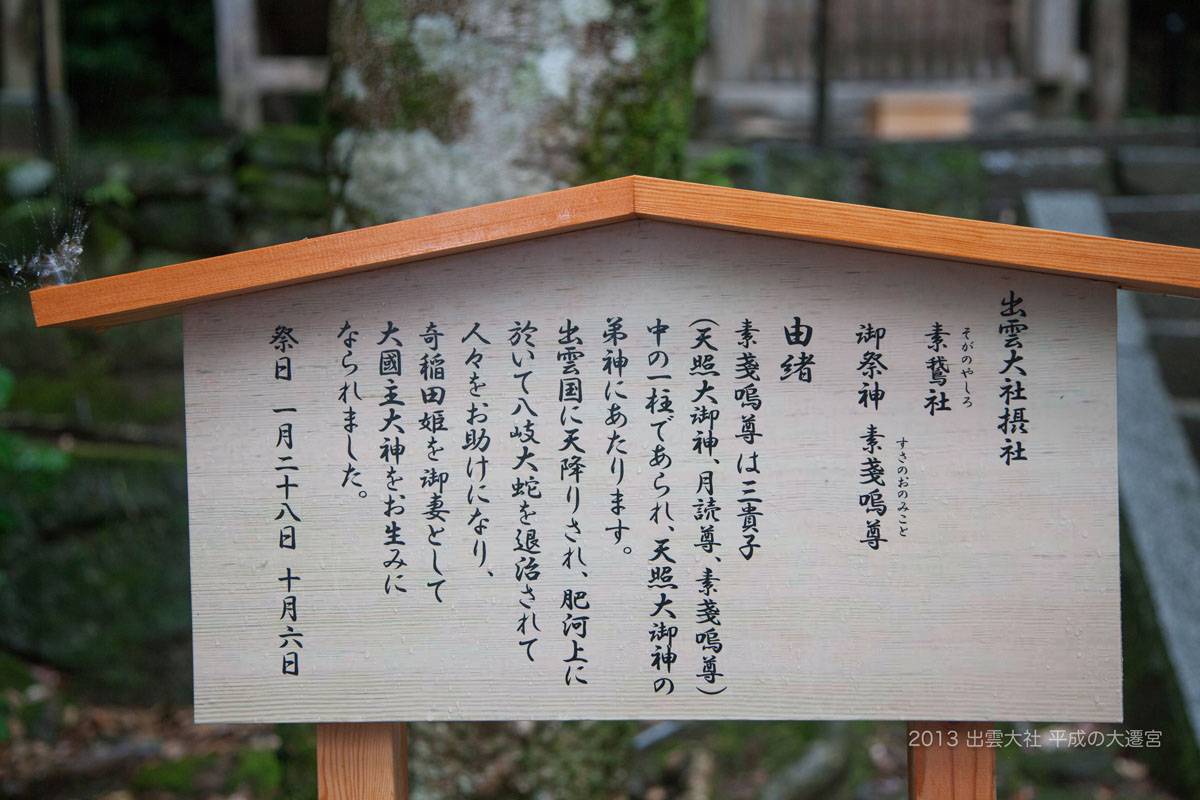 出雲大社摂社
そがのやしろ
素鵞社
すさのおのみこと
御祭神 素戔嗚尊
由緒
素戔嗚尊は三貴子
(天照大御神、月読尊、素戔嗚尊)
中の一柱であられ、天照大御神の
弟神にあたります。
出雲国に天降りされ、肥河上に
於いて八岐大蛇を退治されて
人々をお助けになり、
奇稲田姫を御妻として
大國主大神をお生みに
なられました。
祭日 一月二十八日 十月六日
2013 出雲大社 平成の大遷宮